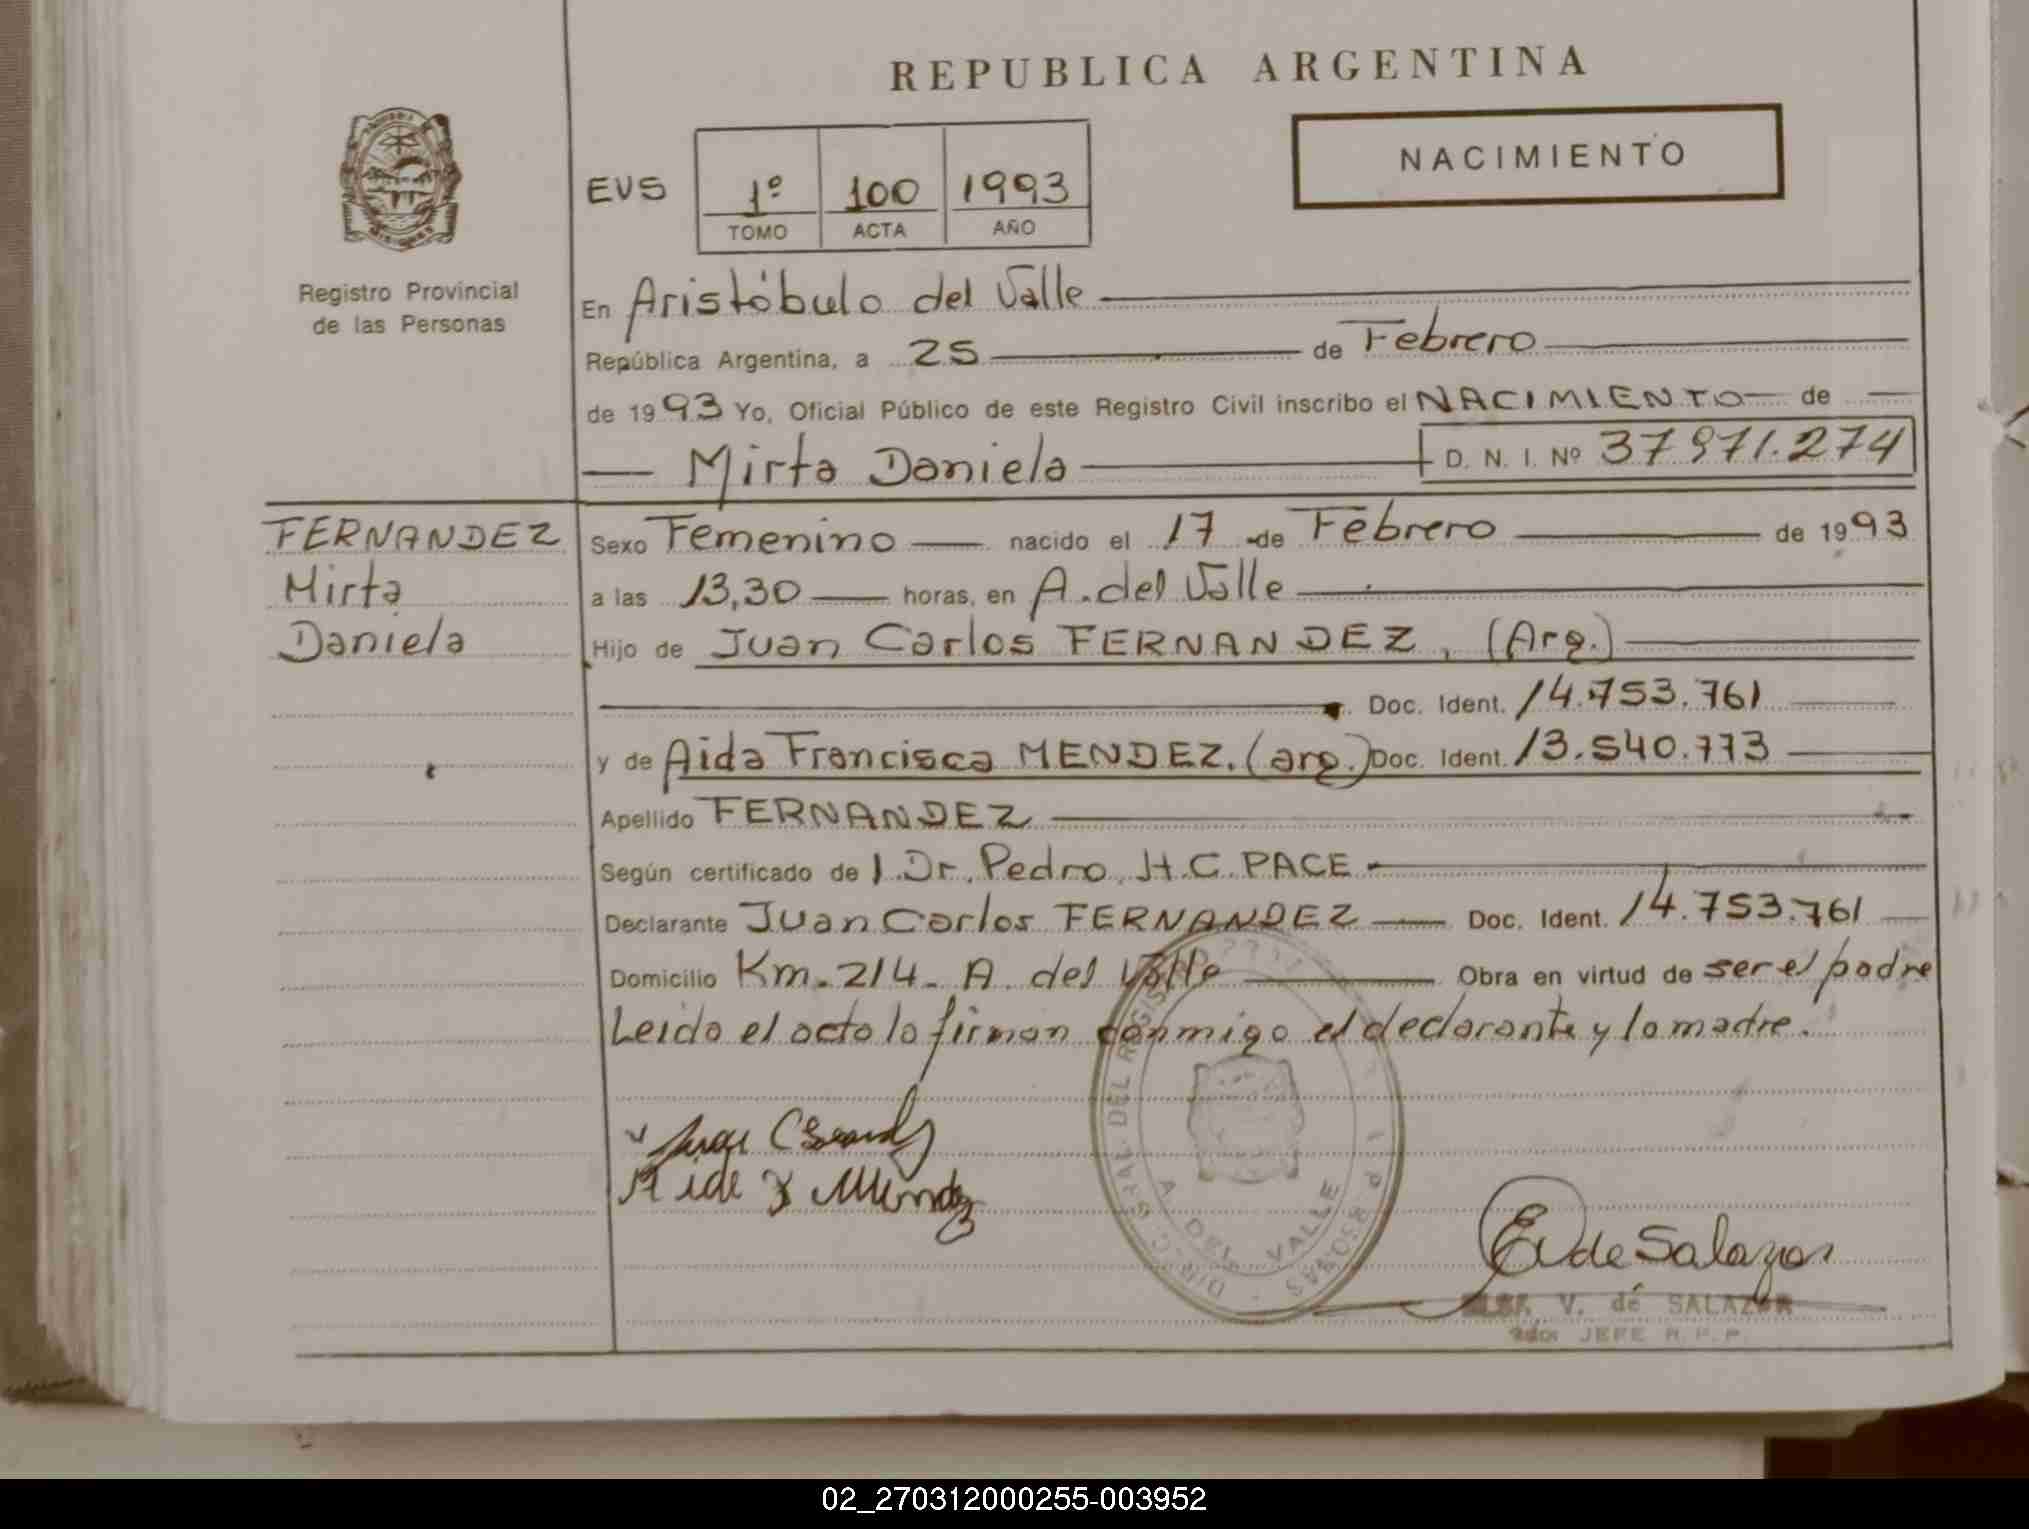 REPUBLICA ARGENTINA
NACIMIENTO
EVS 1º 100 1993
TOMO ACTA AÑO
Registro Provincial
de las Personas
En Aristóbulo del Valle
República Argentina, a 25 de Febrero
de 1993 Yo, Oficial Público de este Registro Civil inscribo el NACIMIENTO de
Mirta Daniela D. N. I. Nº 37971.274
FERNANDEZ
Mirta
Daniela
Sexo Femenino nacido el 17 de Febrero de 1993
a las 13,30 horas, en A. del Valle
Hijo de Juan Carlos FERNANDEZ, (Arg.)
Doc. Ident. 14.753.761
y de Aida Francisca MENDEZ. (arg.) Doc. Ident. 13.540.773
Apellido FERNANDEZ
Según certificado de l. Dr. Pedro. H.C. PACE
Declarante Juan Carlos FERNANDEZ Doc. Ident. 14.753.761
Domicilio Km. 214. A. del Valle Obra en virtud de ser el padre
Leido el acto lo firman conmigo el declarante y la madre.
A. DEL VALLE
E V de Salazar
V. de SALAZAR
JEFE R. P. P.
02_270312000255-003952